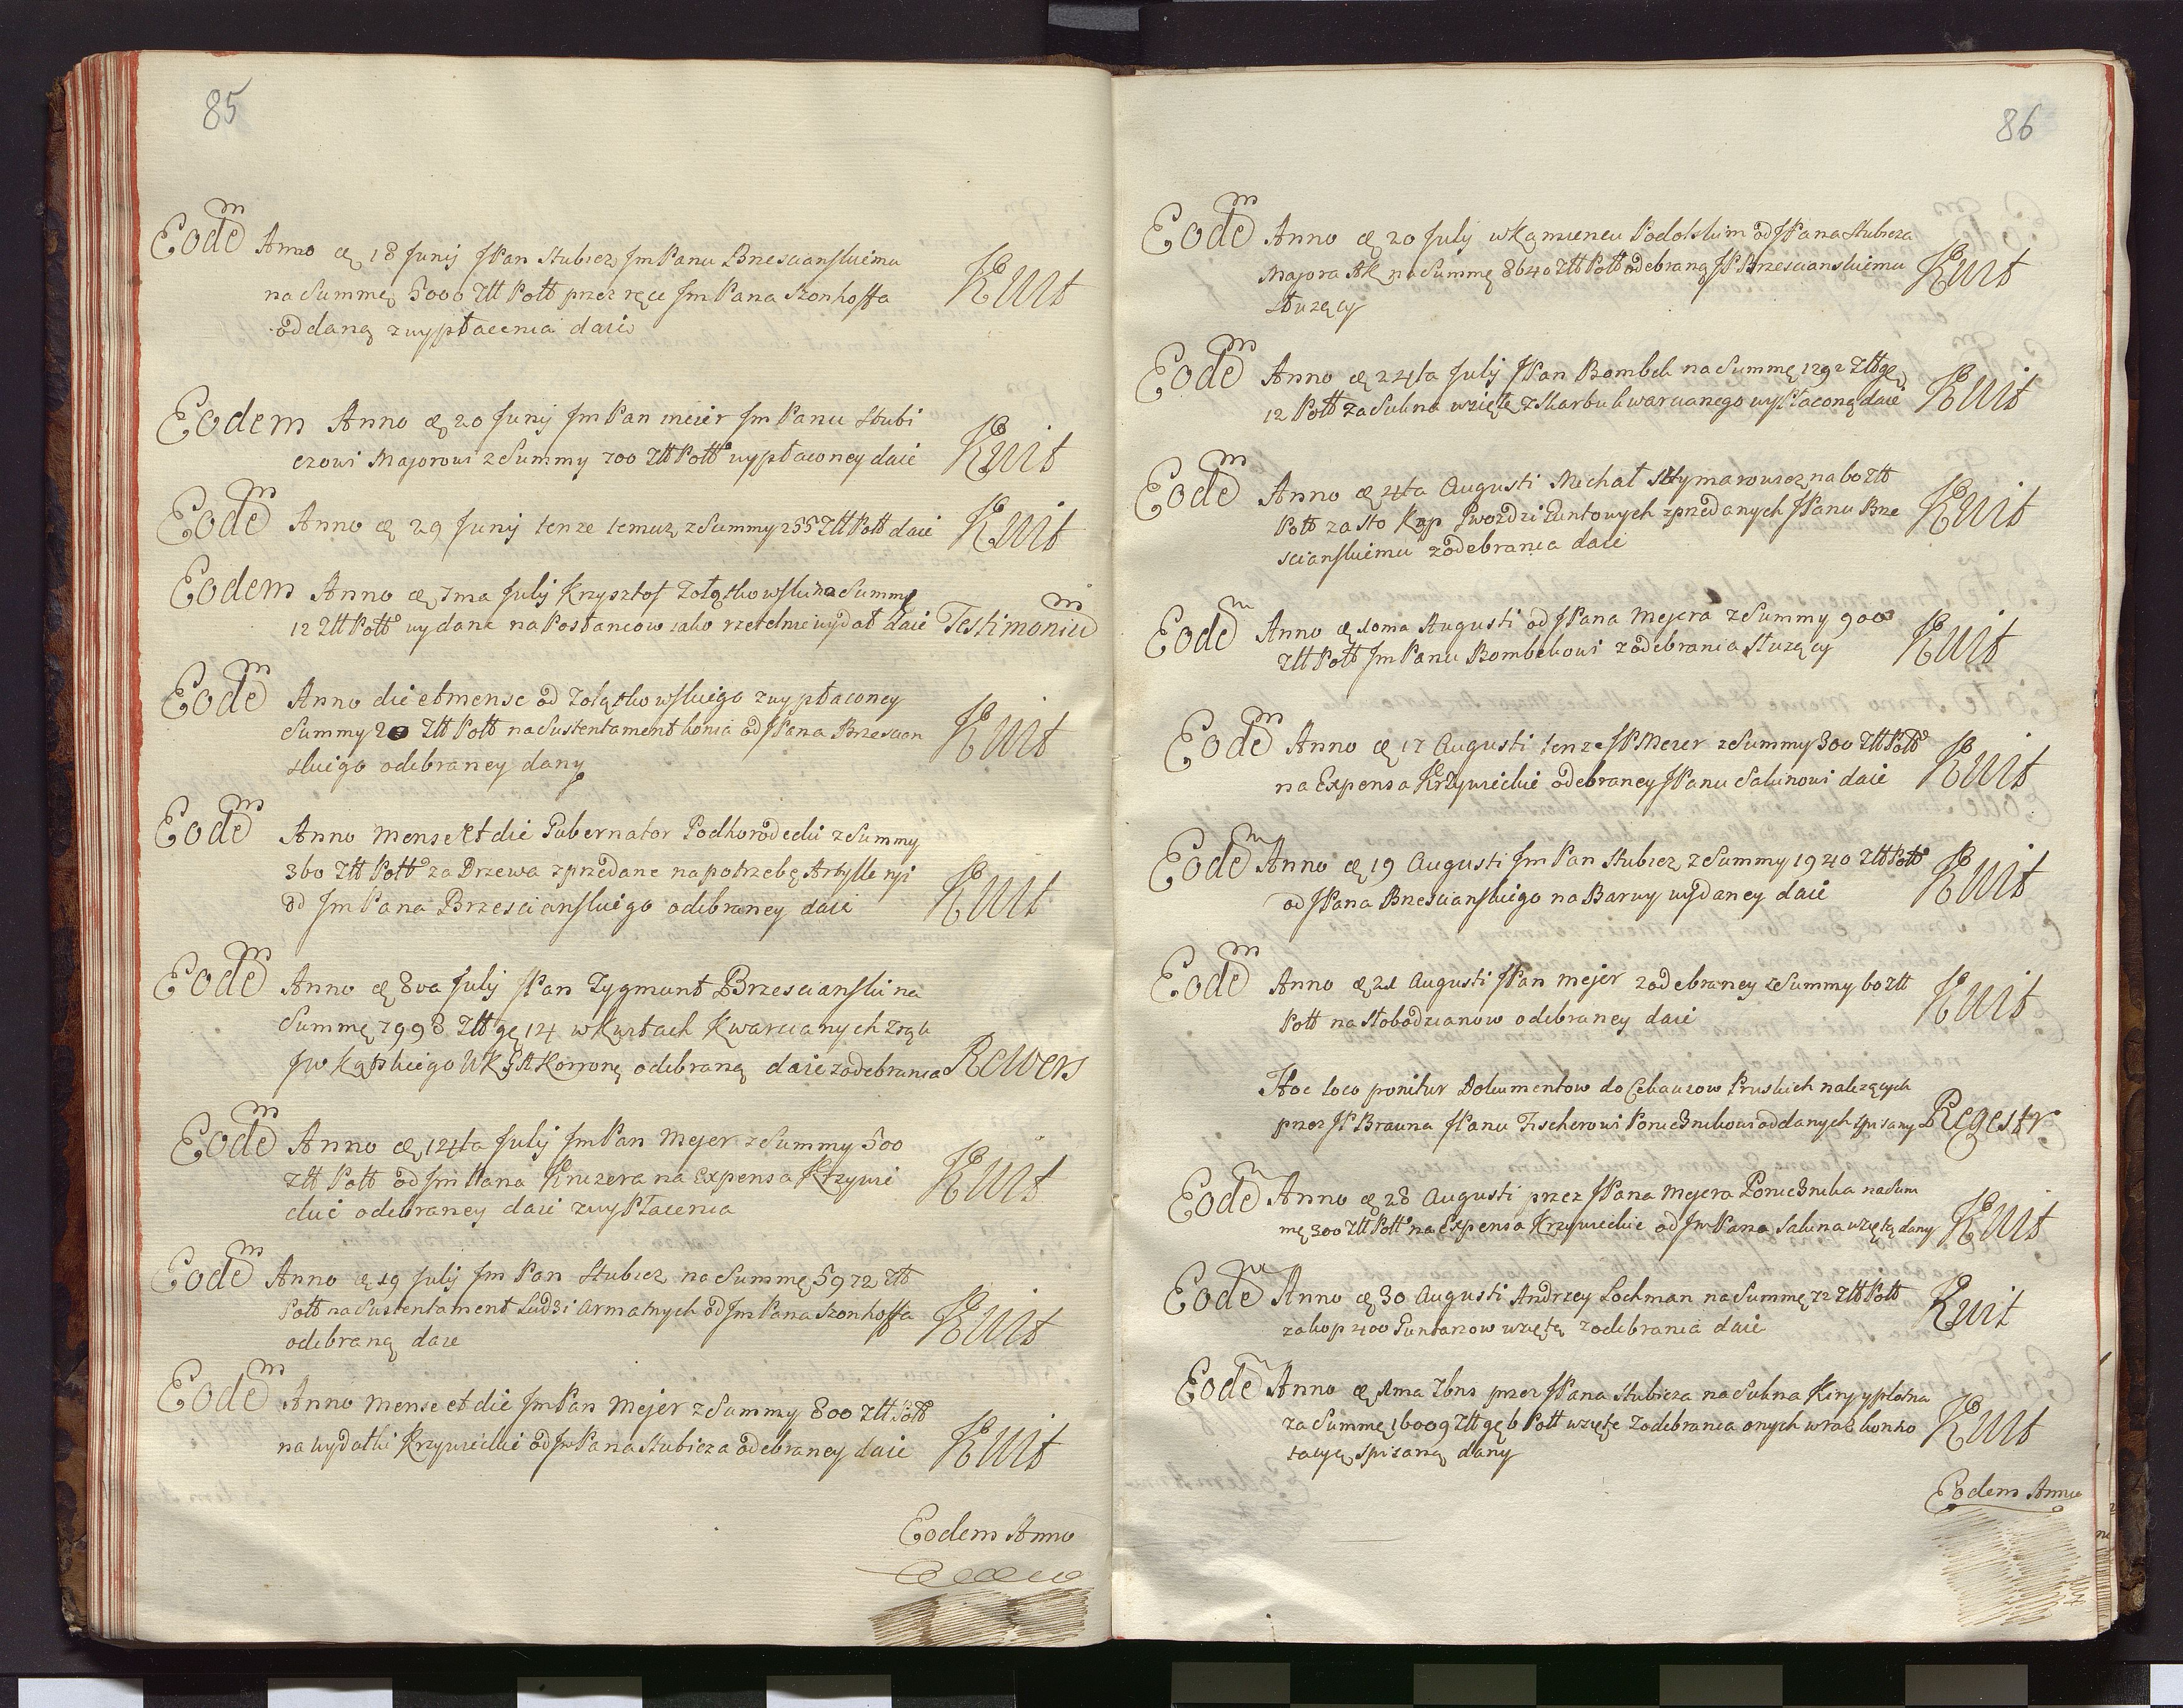 85
Eodem Anno æ 18 Junij JPan Stubicz JmPanu Brzescianskiemu
na Summę 5000 Złł Poll przez ręce JmPana Szonhoffa Kwit
oddaną zwypłacenia daie
Eodem Anno æ 20 Junij Jm Pan meier Jm Panu Stubi
czowi Majorowi z Summy 700 Złł Poll wypłaconey daie Kwit
Eodem Anno æ 29 Junij tenze temuz z Summy 255 Złł Poll daie Kwit
Eodem Anno æ 7ma July Krzysztof Zołątkowski na Summę
12 Złł Poll wydane na Posłancow iako rzetelnie wydał daie Testimonium
Eodem Anno die et mense od Zołątkowskiego zwypłaconey
Summy 20 Złł Poll na Sustentament konia od JPana Brzescian Kwit
skiego odebraney dany
Eodem Anno Mense et die Gubernator Podhorodecki z Summy
360 Złł Poll za Drzewa zprzedane na potrzebę Artylleryi
od JmPana Brzescianskiego odebraney daie Kwit
Eodem Anno æ 8va July JPan Zygmunt Brzescianski na
Summę 7998 Złł gę 14 w Kwitach Kwarcianych z rąk
Jw Kątskiego odebraną daie zodebrania Rewers
Eodem Anno æ 14ta July JmPan Mejer z Summy 500
Złł Poll od Jm Pana Kruzera na Expensa Krzywi Kwit
ckie odebraney daie zwypłacenia
Eodem Anno æ 19 July Jm Pan Stubicz na Summę 5972 Złł
Poll na Sustentament Ludzi Armatnych od JmPana Szonhoffa Kwit
odebraną daie
Eodem Anno Mense et die JmPan Mejer z Summy 800 Złł Poll
na wydatki Krzywieckie od JmPana Stubicza odebraney daie Kwit
Eodem Anno
86
Eodem Anno æ 20 July w Kamiencu Podolskim od JPana Stubicza
Majora AK na Summę 8640 Złł Poll odebraną JP Brzescianskiemu Kwit
służący
Eodem Anno æ 24ta July JPan Bombek na Summę 1292 Złł gę
12 Poll za Sukna wzięte z Skarbu kwarcianego wypłaconą daie Kwit
Eodem Anno æ 4ta Augusti Michał Szymanowicz na 60 Złł
Poll za sto Kop Gwozdzi Guntowych zprzedanych JPanu Brze Kwit
scianskiemu zodebrania daie
Eodem Anno æ 10ma Augusti od JPana Mejera z Summy 900
Złł Poll JmPanu Bombekowi zodebrania służący Kwit
Eodem Anno æ 17 Augusti tenze JP Meier z Summy 300 Złł Poll
na Expensa Krzywieckie odebraney JPanu Salinowi daie Kwit
Eodem Anno æ 19 Augusti Jm Pan Stubicz z Summy 1940 Złł Poll
od JPana Brzescianskiego na Barwy wydaney daie Kwit
Eodem Anno æ 21 Augusti JPan mejer zodebraney z Summy 60 Złł
Poll na Słobodzianow odebraney daie Kwit
Hoc loco ponitur Dokumentow do Cekauzow Pruskich należących
przez JP Brauna JPanu Fischerowi Porucznikowi oddanych spisany Regestr
Eodem Anno æ 28 Augusti przez JPana Mejera Porucznika na Sum
mę 300 Złł Poll na Expensa Krzywieckie od JmPana Salina wziętą dany Kwit
Eodem Anno æ 30 Augusti Andrzey Lochman na Summę 72 Złł Poll
za kop 400 Guntarow wziętą zodebrania daie Kwit
Eodem Anno æ 1ma 7bris przez JPana Stubicza na Sukna Kiry y płotna
za Summę 16009 Złł gę 6 Poll wzięte zodebrania onych wraz konno
tacyę spisaną dany Kwit
Eodem Anno